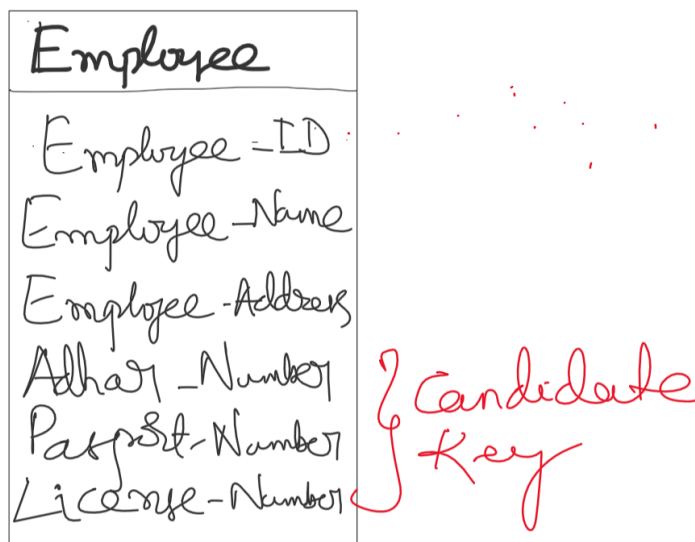 Employee
Employee_ID
Employee_Name
Employee-Address
Adhar_Number
Passport-Number
License-Number
Candidate
Key